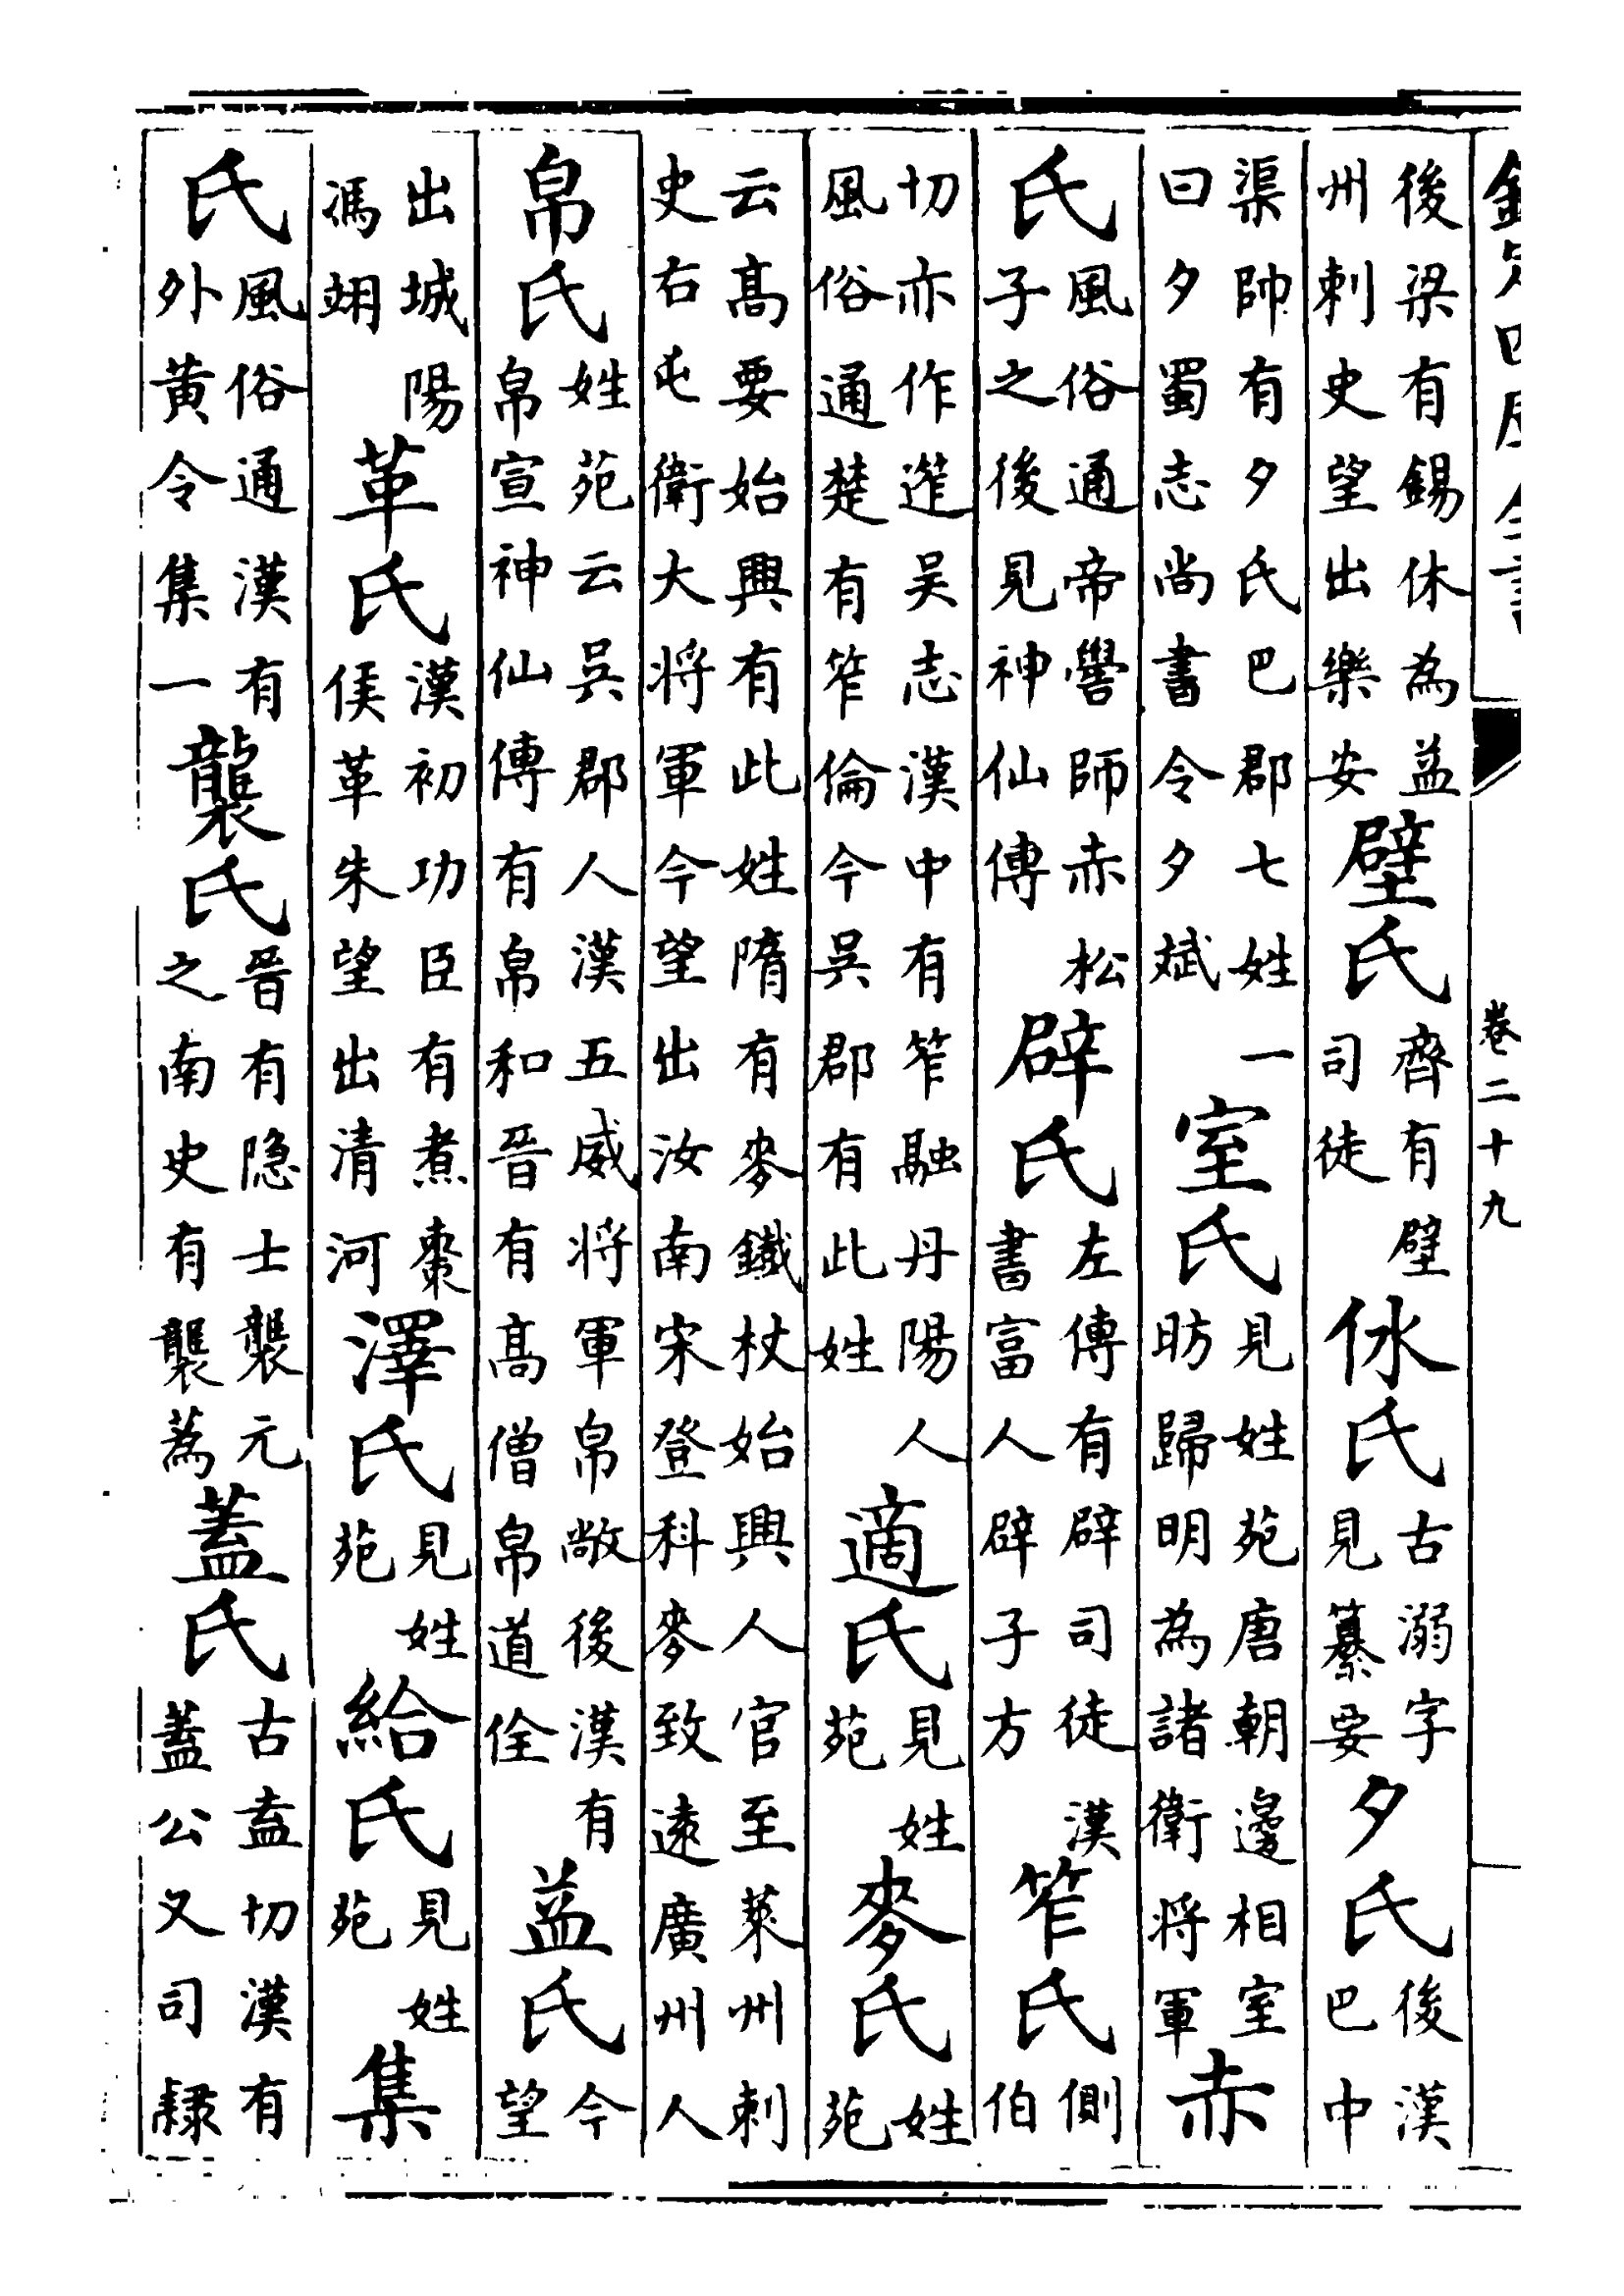 卷二十九
後梁有錫休為益州刺史望出樂安壁氏齊有壁司徒㲻氏古溺字見纂要夕氏後漢巴中
渠帥有夕氏巴郡七姓一曰夕蜀志尚書令夕斌室氏見姓苑唐朝邊相室昉歸明為諸衛将軍赤
氏風俗通帝嚳師赤松子之後見神仙傳辟氏左傳有辟司徒漢書富人辟子方笮氏側伯
切亦作迮吴志漢中有笮笮融丹陽人風俗通楚有笮倫今吳郡有此姓適氏見姓苑麥氏姓苑
云髙要始興有此姓隋有麥鐵杖始興人官至萊州刺史右屯衛大将軍今望出汝南宋登科麥致逺廣州人
帛氏姓苑云吳郡人漢五威将軍帛敞後漢有帛宣神仙傳有帛和晉有髙僧帛道佺益氏今望
出城陽馮翊革氏漢初功臣有煮棗侯革朱望出清河澤氏見姓苑給氏見姓苑集
氏風俗通漢有外黄令集一襲氏晉有隐士襲元之南史有襲蔿蓋氏古盍切漢有蓋公又司隸